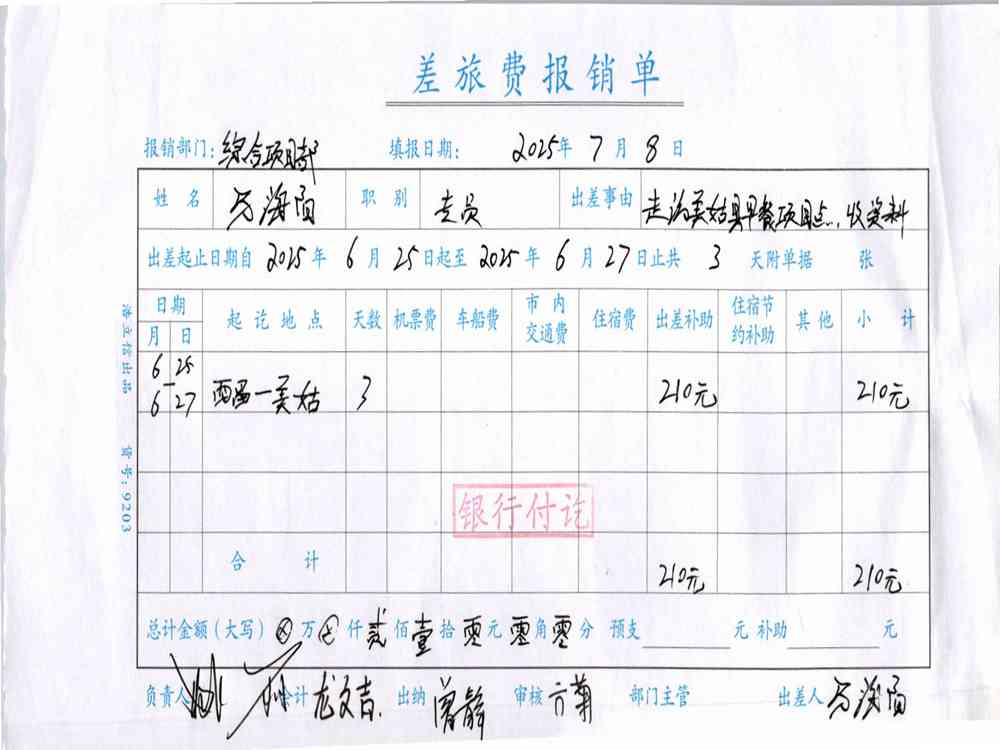 差旅费报销单
报销部门：综合项目部 填报日期： 2025年 7月 8日
姓名 马海阳 职别 专员 出差事由 走访美姑县早餐项目点，收资料
出差起止日期自 2025年 6月 25日起至 2025年 6月 27日止共 3 天附单据 张
日期 起讫地点 天数 机票费 车船费 市内交通费 住宿费 出差补助 住宿节约补助 其他 小计
月 日
6 25
6 27 西昌—美姑 3 210元 210元
银行付讫
合计 210元 210元
总计金额（大写）⊗万⊗仟贰佰壹拾零元零角零分 预支 元 补助 元
负责人 会计 龙文吉 出纳 曾静 审核 方菊 部门主管 出差人 马海阳
浩立信出品 货号：9203